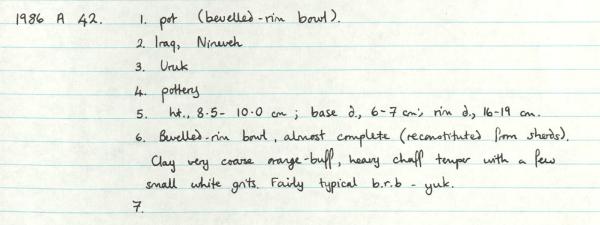 1986 A 42. 1. pot (bevelled-rim bowl).
2. Iraq, Nineveh
3. Uruk
4. pottery
5. ht., 8.5- 10.0 cm ; base d., 6-7 cm; rim d., 16-19 cm.
6. Bevelled-rim bowl, almost complete (reconstituted from sherds).
Clay very coarse orange-buff, heavy chaff temper with a few
small white grits. Fairly typical b.r.b - yuk.
7.